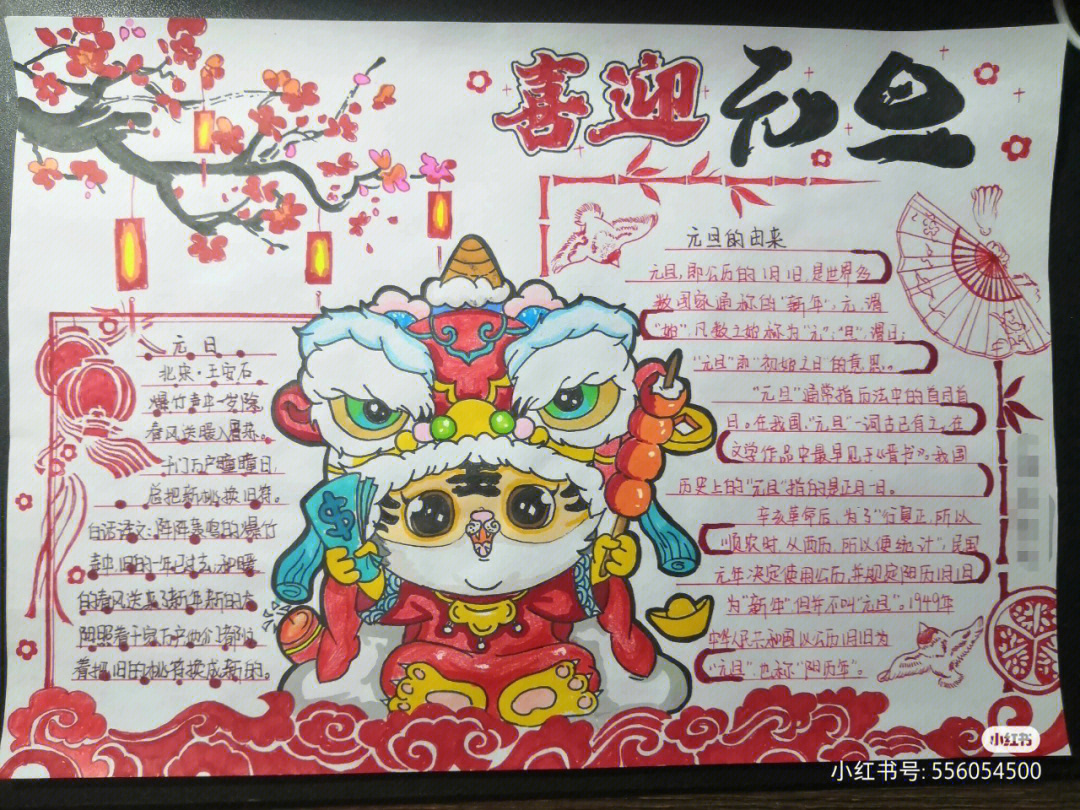 喜迎元旦
元旦
北宋·王安石
爆竹声中一岁除,
春风送暖入屠苏。
千门万户曈曈日,
总把新桃换旧符。
白话译文:阵阵轰鸣的爆竹
声中,旧的一年已过去;和暖
的春风送来了新年,新的太
阳照着千家万户,他们都忙
着把旧的桃符换成新的。
元旦的由来
元旦,即公历的1月1日,是世界多
数国家通称的"新年"。元,谓
"始",凡数之始称为"元";"旦",谓日;
"元旦"即"初始之日"的意思。
"元旦"通常指历法中的首月首
日。在我国,"元旦"一词古已有之,在
文学作品中最早见于《晋书》。我国
历史上的"元旦"指的是正月一日。
辛亥革命后,为了"行夏正,所以
顺农时,从西历,所以便统计",民国
元年决定使用公历,并规定阳历1月1日
为"新年",但并不叫"元旦"。1949年
中华人民共和国以公历1月1日为
"元旦",也称"阳历年"。
小红书
小红书号: 556054500